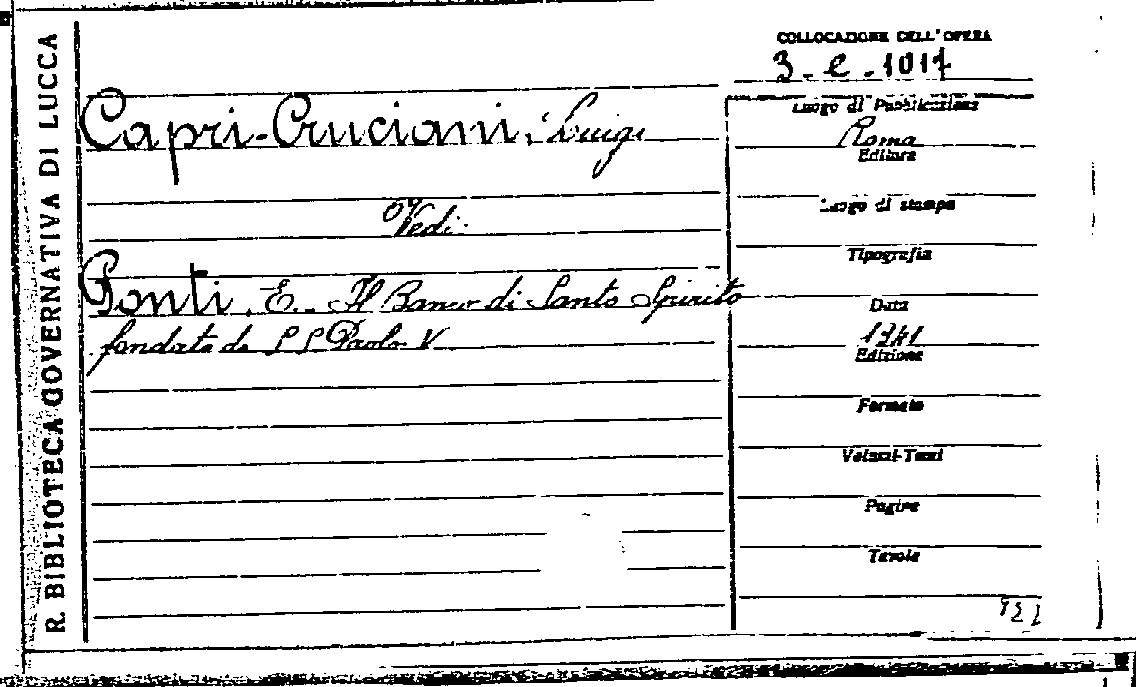 R. BIBLIOTECA GOVERNATIVA DI LUCCA
COLLOCAZIONE DELL'OPERA
3-e-1017
Capri-Cruciani, Luigi
Vedi:
Ponti, E. Il Banco di Santo Spirito
fondato da S S Paolo V
Luogo di Pubblicazione
Roma
Editore
Luogo di stampa
Tipografia
Data
1941
Edizione
Formato
Volumi-Tomi
Pagine
Tavole